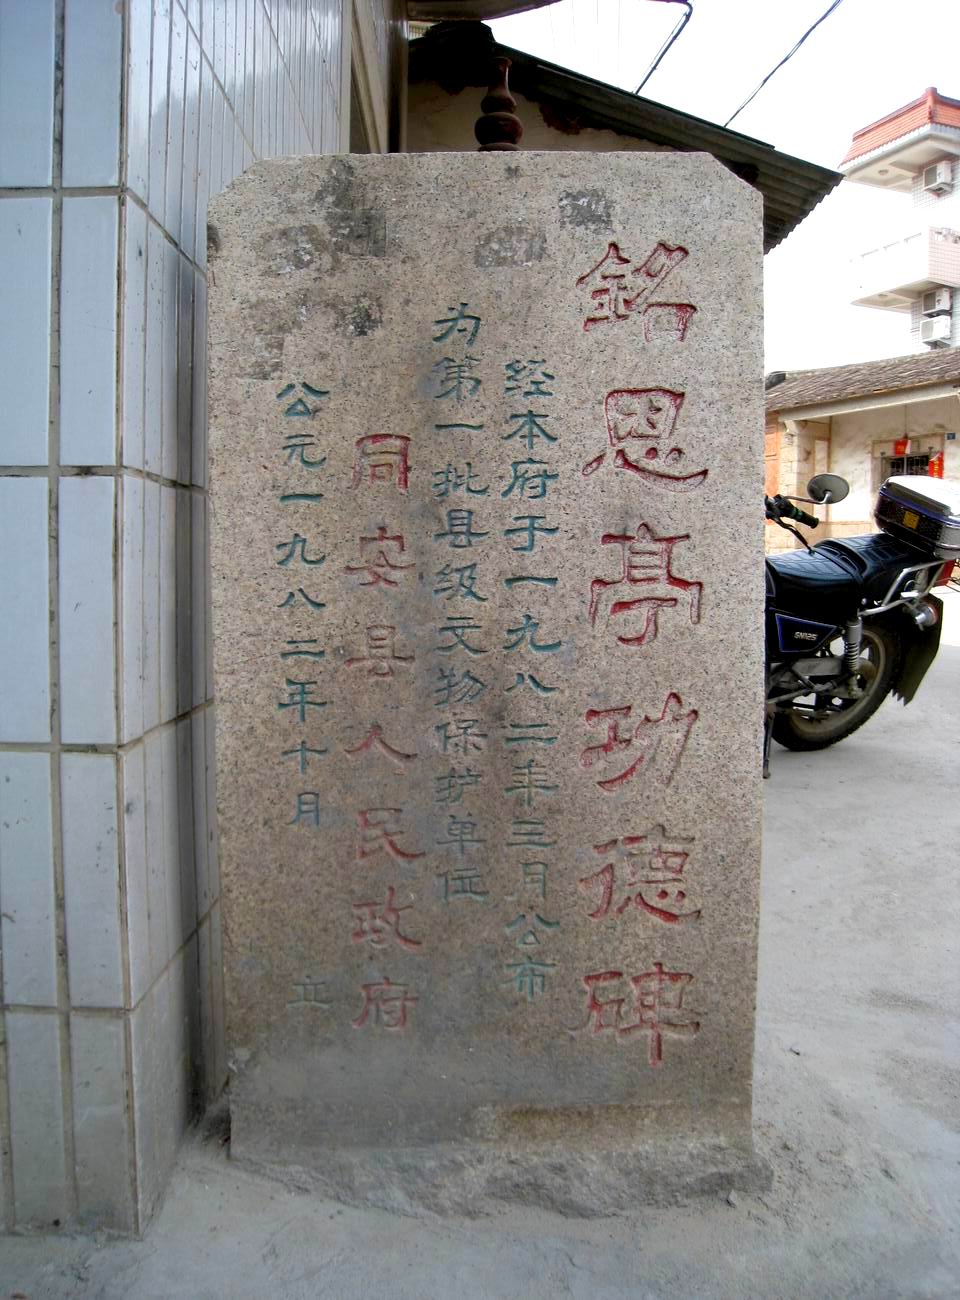 銘恩亭功德碑
经本府于一九八二年三月公布
为第一批县级文物保护单位
同安县人民政府
公元一九八二年十月 立
GN125